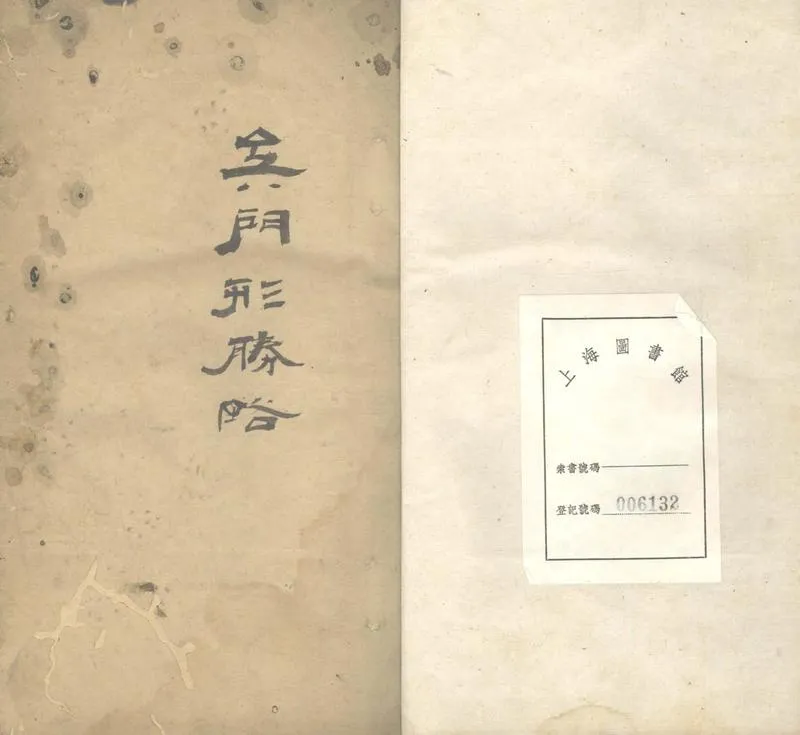 門形勝略
上海圖書館
索書號碼
登記號碼 006132